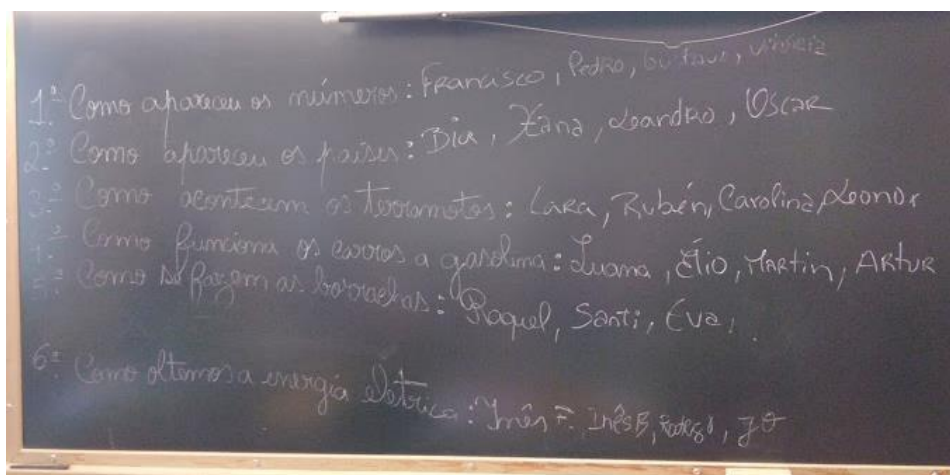 1.º Como apareceu os números: Francisco, Pedro, Gustavo, Vitória
2.º Como apareceu os países: Bia, Zana, Leandro, Oscar
3.º Como acontecem os terramotos: Lara, Rubén, Carolina, Leonor
4.º Como funciona os carros a gasolina: Luana, Élio, Martin, Artur
5.º Como se fazem as borrachas: Raquel, Santi, Eva,
6.º Como oltemos a energia eletrica: Inês F. Inês B, Rodrigo,